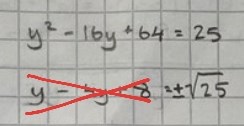 y² - 16y + 64 = 25
y - 4y - 8 = ±√25